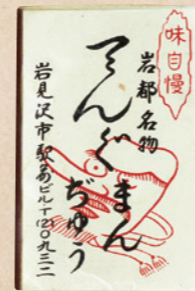 味自慢
岩都名物
てんぐまん
ぢゅう
岩見沢市駅前ビルT(2)〇九三二